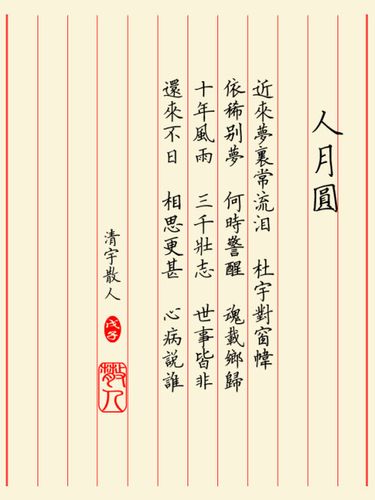 人月圓
近來夢裏常流泪　杜宇對窗幃
依稀别夢　何時警醒　魂載鄉歸
十年風雨　三千壯志　世事皆非
還來不日　相思更甚　心病説誰
清宇散人
戊子
散人